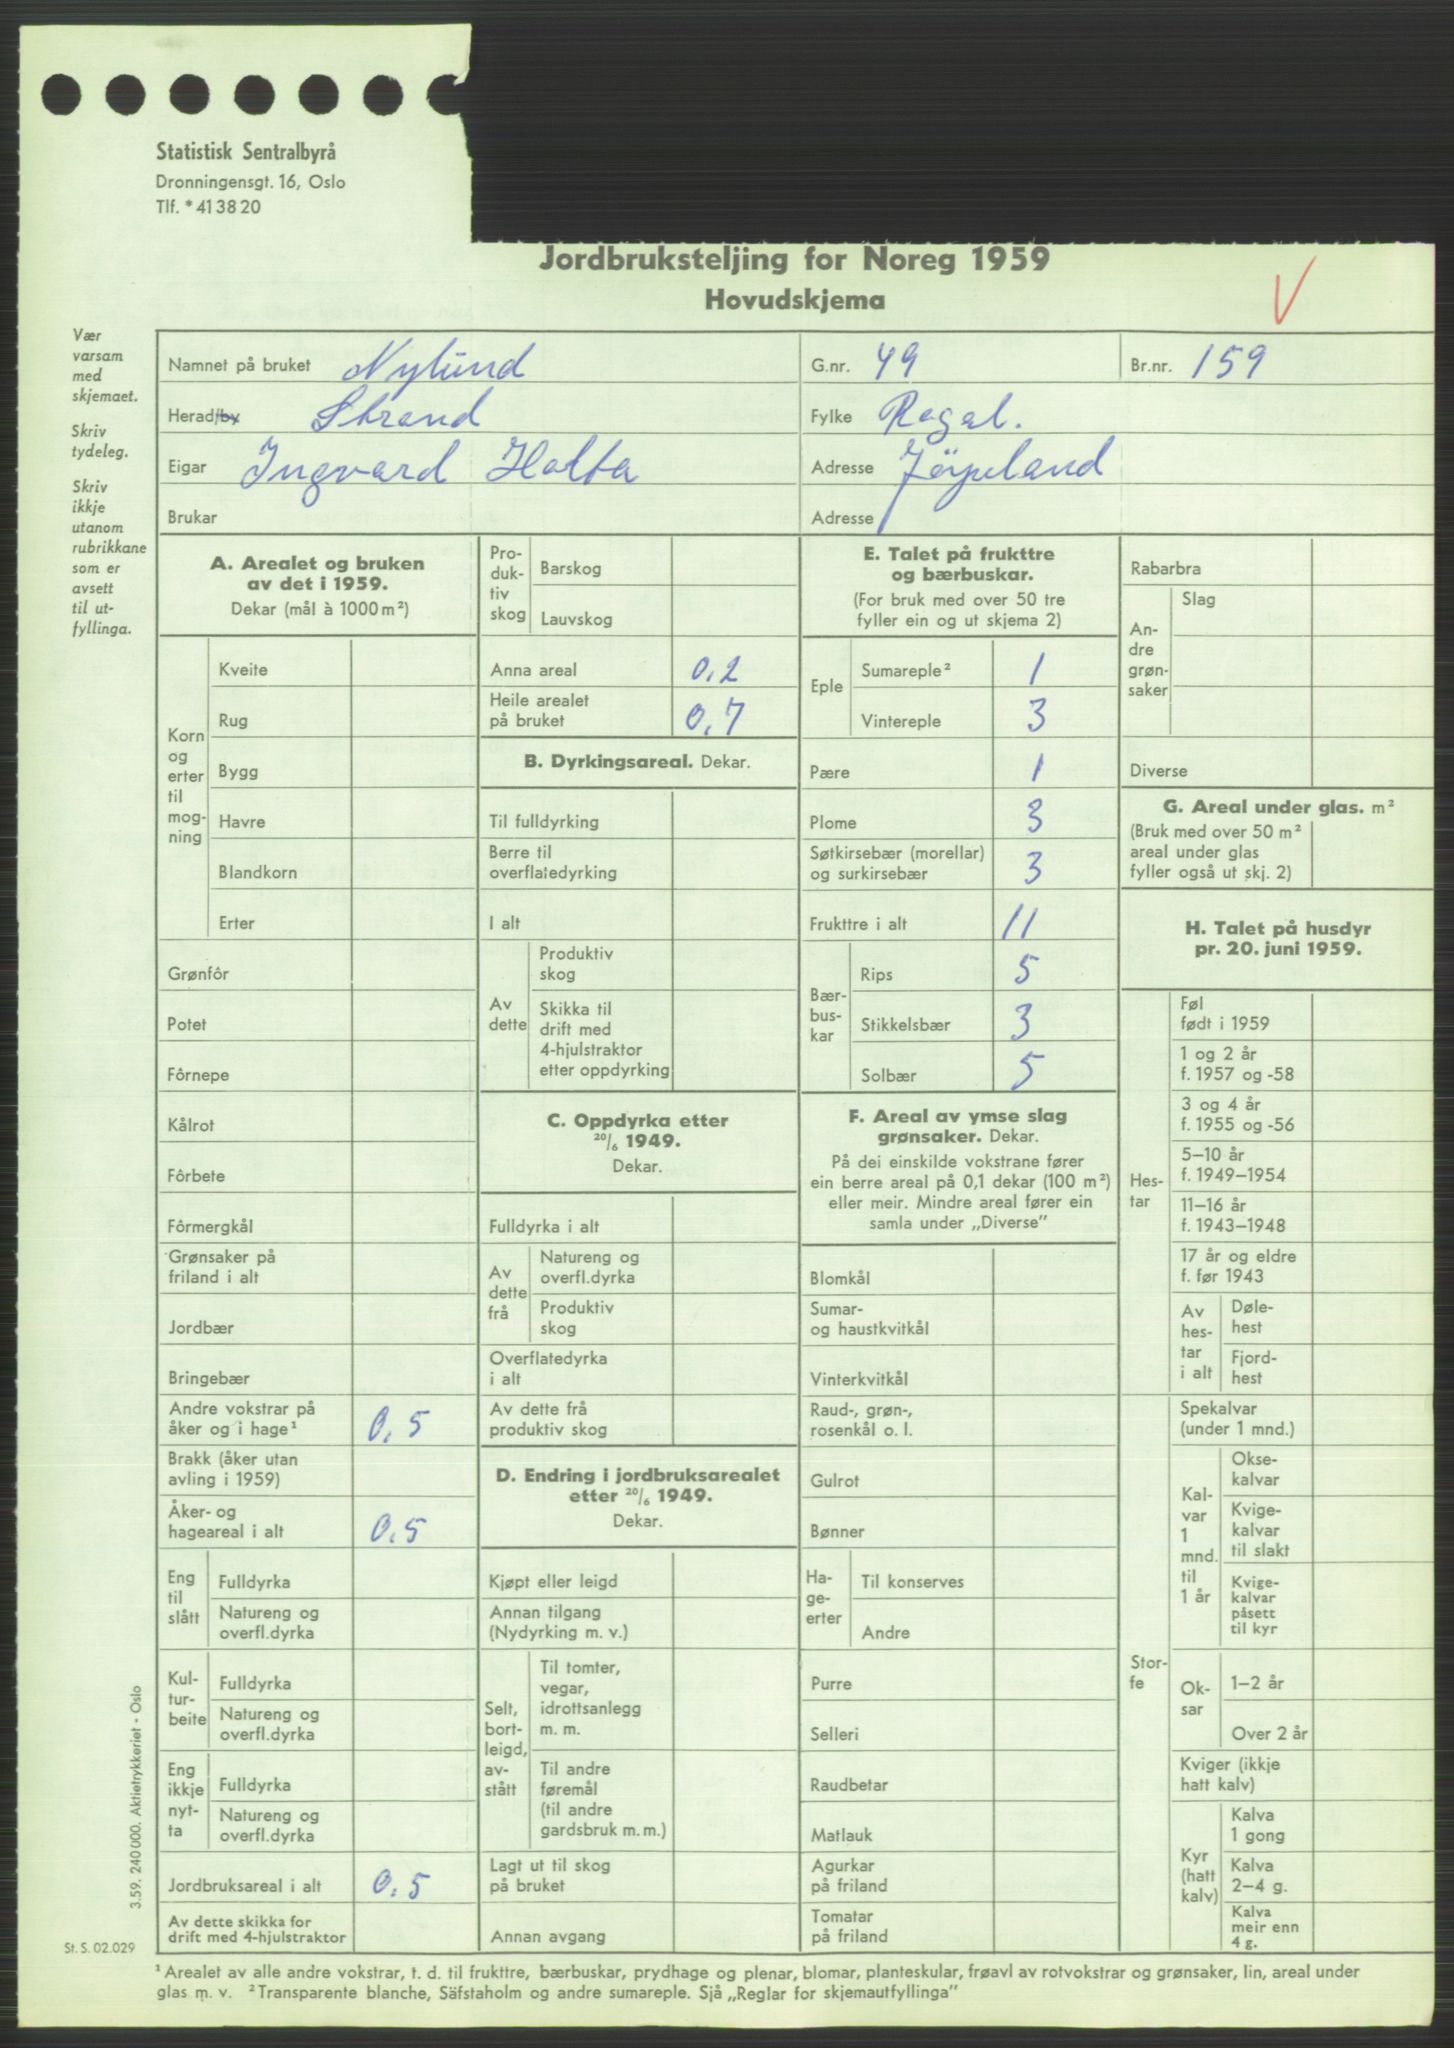 Statistisk Sentralbyrå
Dronningensgt. 16, Oslo
Tlf. * 41 38 20
Jordbruksteljing for Noreg 1959
Hovudskjema
V
Vær
varsam
med
skjemaet.
Skriv
tydeleg.
Skriv
ikkje
utanom
rubrikkane
som er
avsett
til ut-
fyllinga.
Namnet på bruket Nylund G.nr. 49 Br.nr. 159
Herad/by Strand Fylke Rogal.
Eigar Ingvard Holta Adresse Jörpeland
Brukar Adresse
A. Arealet og bruken
av det i 1959.
Dekar (mål à 1000 m²)
Korn
og
erter
til
mog-
ning
Kveite
Rug
Bygg
Havre
Blandkorn
Erter
Grønfôr
Potet
Fôrnepe
Kålrot
Fôrbete
Fôrmergkål
Grønsaker på
friland i alt
Jordbær
Bringebær
Andre vokstrar på
åker og i hage¹ 0.5
Brakk (åker utan
avling i 1959)
Åker- og
hageareal i alt 0.5
Eng
til
slått
Fulldyrka
Natureng og
overfl.dyrka
Kul-
tur-
beite
Fulldyrka
Natureng og
overfl.dyrka
Eng
ikkje
nyt-
ta
Fulldyrka
Natureng og
overfl.dyrka
Jordbruksareal i alt 0.5
Av dette skikka for
drift med 4-hjulstraktor
Pro-
duk-
tiv
skog
Barskog
Lauvskog
Anna areal 0.2
Heile arealet
på bruket 0.7
B. Dyrkingsareal. Dekar.
Til fulldyrking
Berre til
overflatedyrking
I alt
Av
dette
Produktiv
skog
Skikka til
drift med
4-hjulstraktor
etter oppdyrking
C. Oppdyrka etter
20/6 1949.
Dekar.
Fulldyrka i alt
Av
dette
frå
Natureng og
overfl.dyrka
Produktiv
skog
Overflatedyrka
i alt
Av dette frå
produktiv skog
D. Endring i jordbruksarealet
etter 20/6 1949.
Dekar.
Kjøpt eller leigd
Annan tilgang
(Nydyrking m. v.)
Selt,
bort-
leigd,
av-
stått
Til tomter,
vegar,
idrottsanlegg
m. m.
Til andre
føremål
(til andre
gardsbruk m. m.)
Lagt ut til skog
på bruket
Annan avgang
E. Talet på frukttre
og bærbuskar.
(For bruk med over 50 tre
fyller ein og ut skjema 2)
Eple
Sumareple² 1
Vintereple 3
Pære 1
Plome 3
Søtkirsebær (morellar)
og surkirsebær 3
Frukttre i alt 11
Bær-
bus-
kar
Rips 5
Stikkelsbær 3
Solbær 5
F. Areal av ymse slag
grønsaker. Dekar.
På dei einskilde vokstrane fører
ein berre areal på 0,1 dekar (100 m²)
eller meir. Mindre areal fører ein
samla under „Diverse”
Blomkål
Sumar-
og haustkvitkål
Vinterkvitkål
Raud-, grøn-,
rosenkål o. l.
Gulrot
Bønner
Ha-
ge-
erter
Til konserves
Andre
Purre
Selleri
Raudbetar
Matlauk
Agurkar
på friland
Tomatar
på friland
Rabarbra
An-
dre
grøn-
saker
Slag
Diverse
G. Areal under glas. m²
(Bruk med over 50 m²
areal under glas
fyller også ut skj. 2)
H. Talet på husdyr
pr. 20. juni 1959.
Hes-
tar
Føl
født i 1959
1 og 2 år
f. 1957 og -58
3 og 4 år
f. 1955 og -56
5–10 år
f. 1949–1954
11–16 år
f. 1943–1948
17 år og eldre
f. før 1943
Av
hes-
tar
i alt
Døle-
hest
Fjord-
hest
Stor-
fe
Spekalvar
(under 1 mnd.)
Kal-
var
1
mnd.
til
1 år
Okse-
kalvar
Kvige-
kalvar
til slakt
Kvige-
kalvar
påsett
til kyr
Ok-
sar
1–2 år
Over 2 år
Kviger (ikkje
hatt kalv)
Kyr
(hatt
kalv)
Kalva
1 gong
Kalva
2–4 g.
Kalva
meir enn
4 g.
3.59. 240 000. Aktietrykkeriet - Oslo
St. S. 02.029
¹ Arealet av alle andre vokstrar, t. d. til frukttre, bærbuskar, prydhage og plenar, blomar, planteskular, frøavl av rotvokstrar og grønsaker, lin, areal under
glas m. v. ² Transparente blanche, Säfstaholm og andre sumareple. Sjå „Reglar for skjemautfyllinga”